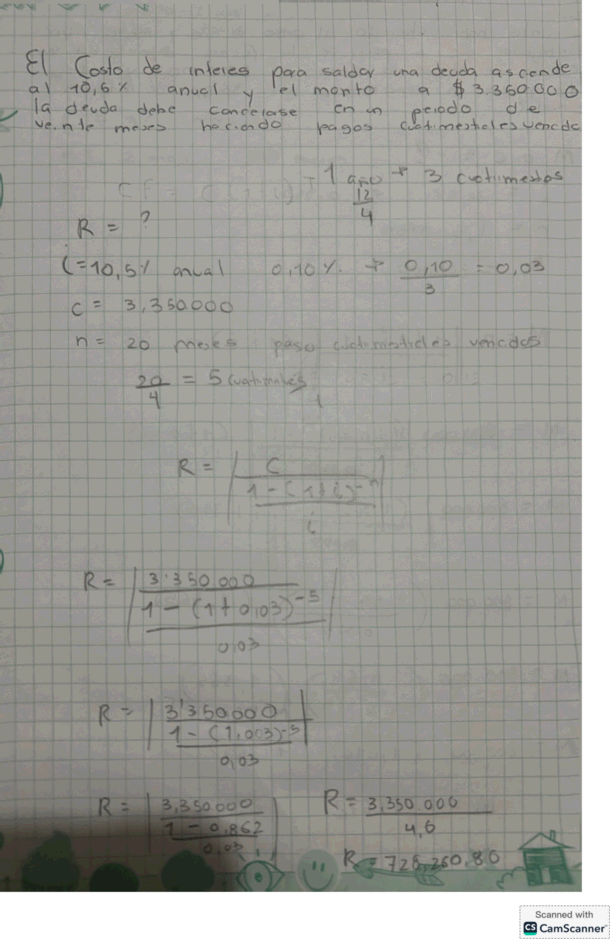 El Costo de interes para saldar una deuda asciende
al 10,5% anual y el monto a $3.350.000
la deuda debe cancelase en un peiodo de
veinte meses haciendo pagos cuatimestieles vencido
1 año → 3 cuatimestes
12
4
R = ?
i=10,5% anual 0,10%. → 0,10 = 0,03
3
c = 3,350.000
n = 20 meses paso cuatimestieles vencidos
20 = 5 cuatimestes
4
R = C
1 - (1+i)⁻ⁿ
i
R = 3'350 000
1 - (1+0,03)⁻⁵
0,03
R = 3'350000
1 - (1,003)⁻⁵
0,03
R = 3,350.000
1 - 0,862
0,03
R = 3,350.000
4,6
R = 728,260,86
Scanned with
CS CamScanner